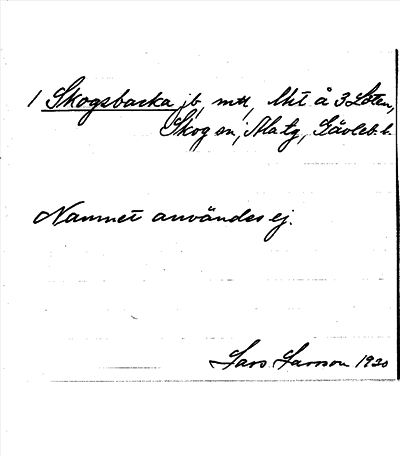 1 Skogsbacka jb, mtl, lht å 3 Löten,
Skog sn, Ala tg, Gävleb. l.
Namnet användes ej.
Lars Larsson 1920